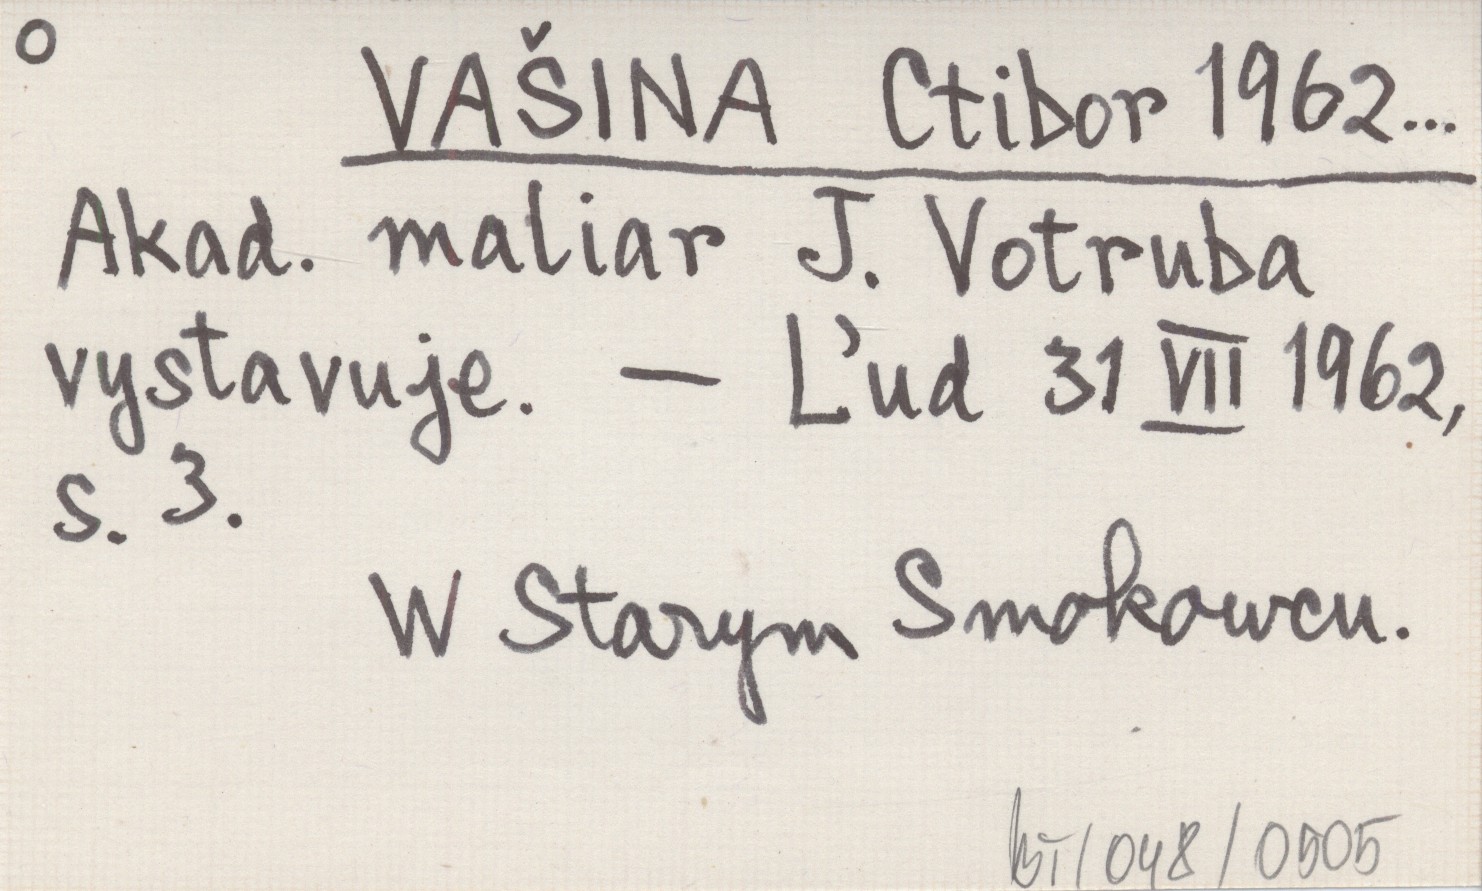 o
VAŠINA Ctibor 1962...
Akad. maliar J. Votruba
vystavuje. — Ľud 31 VII 1962,
s. 3.
W Starym Smokowcu.
/048/0505